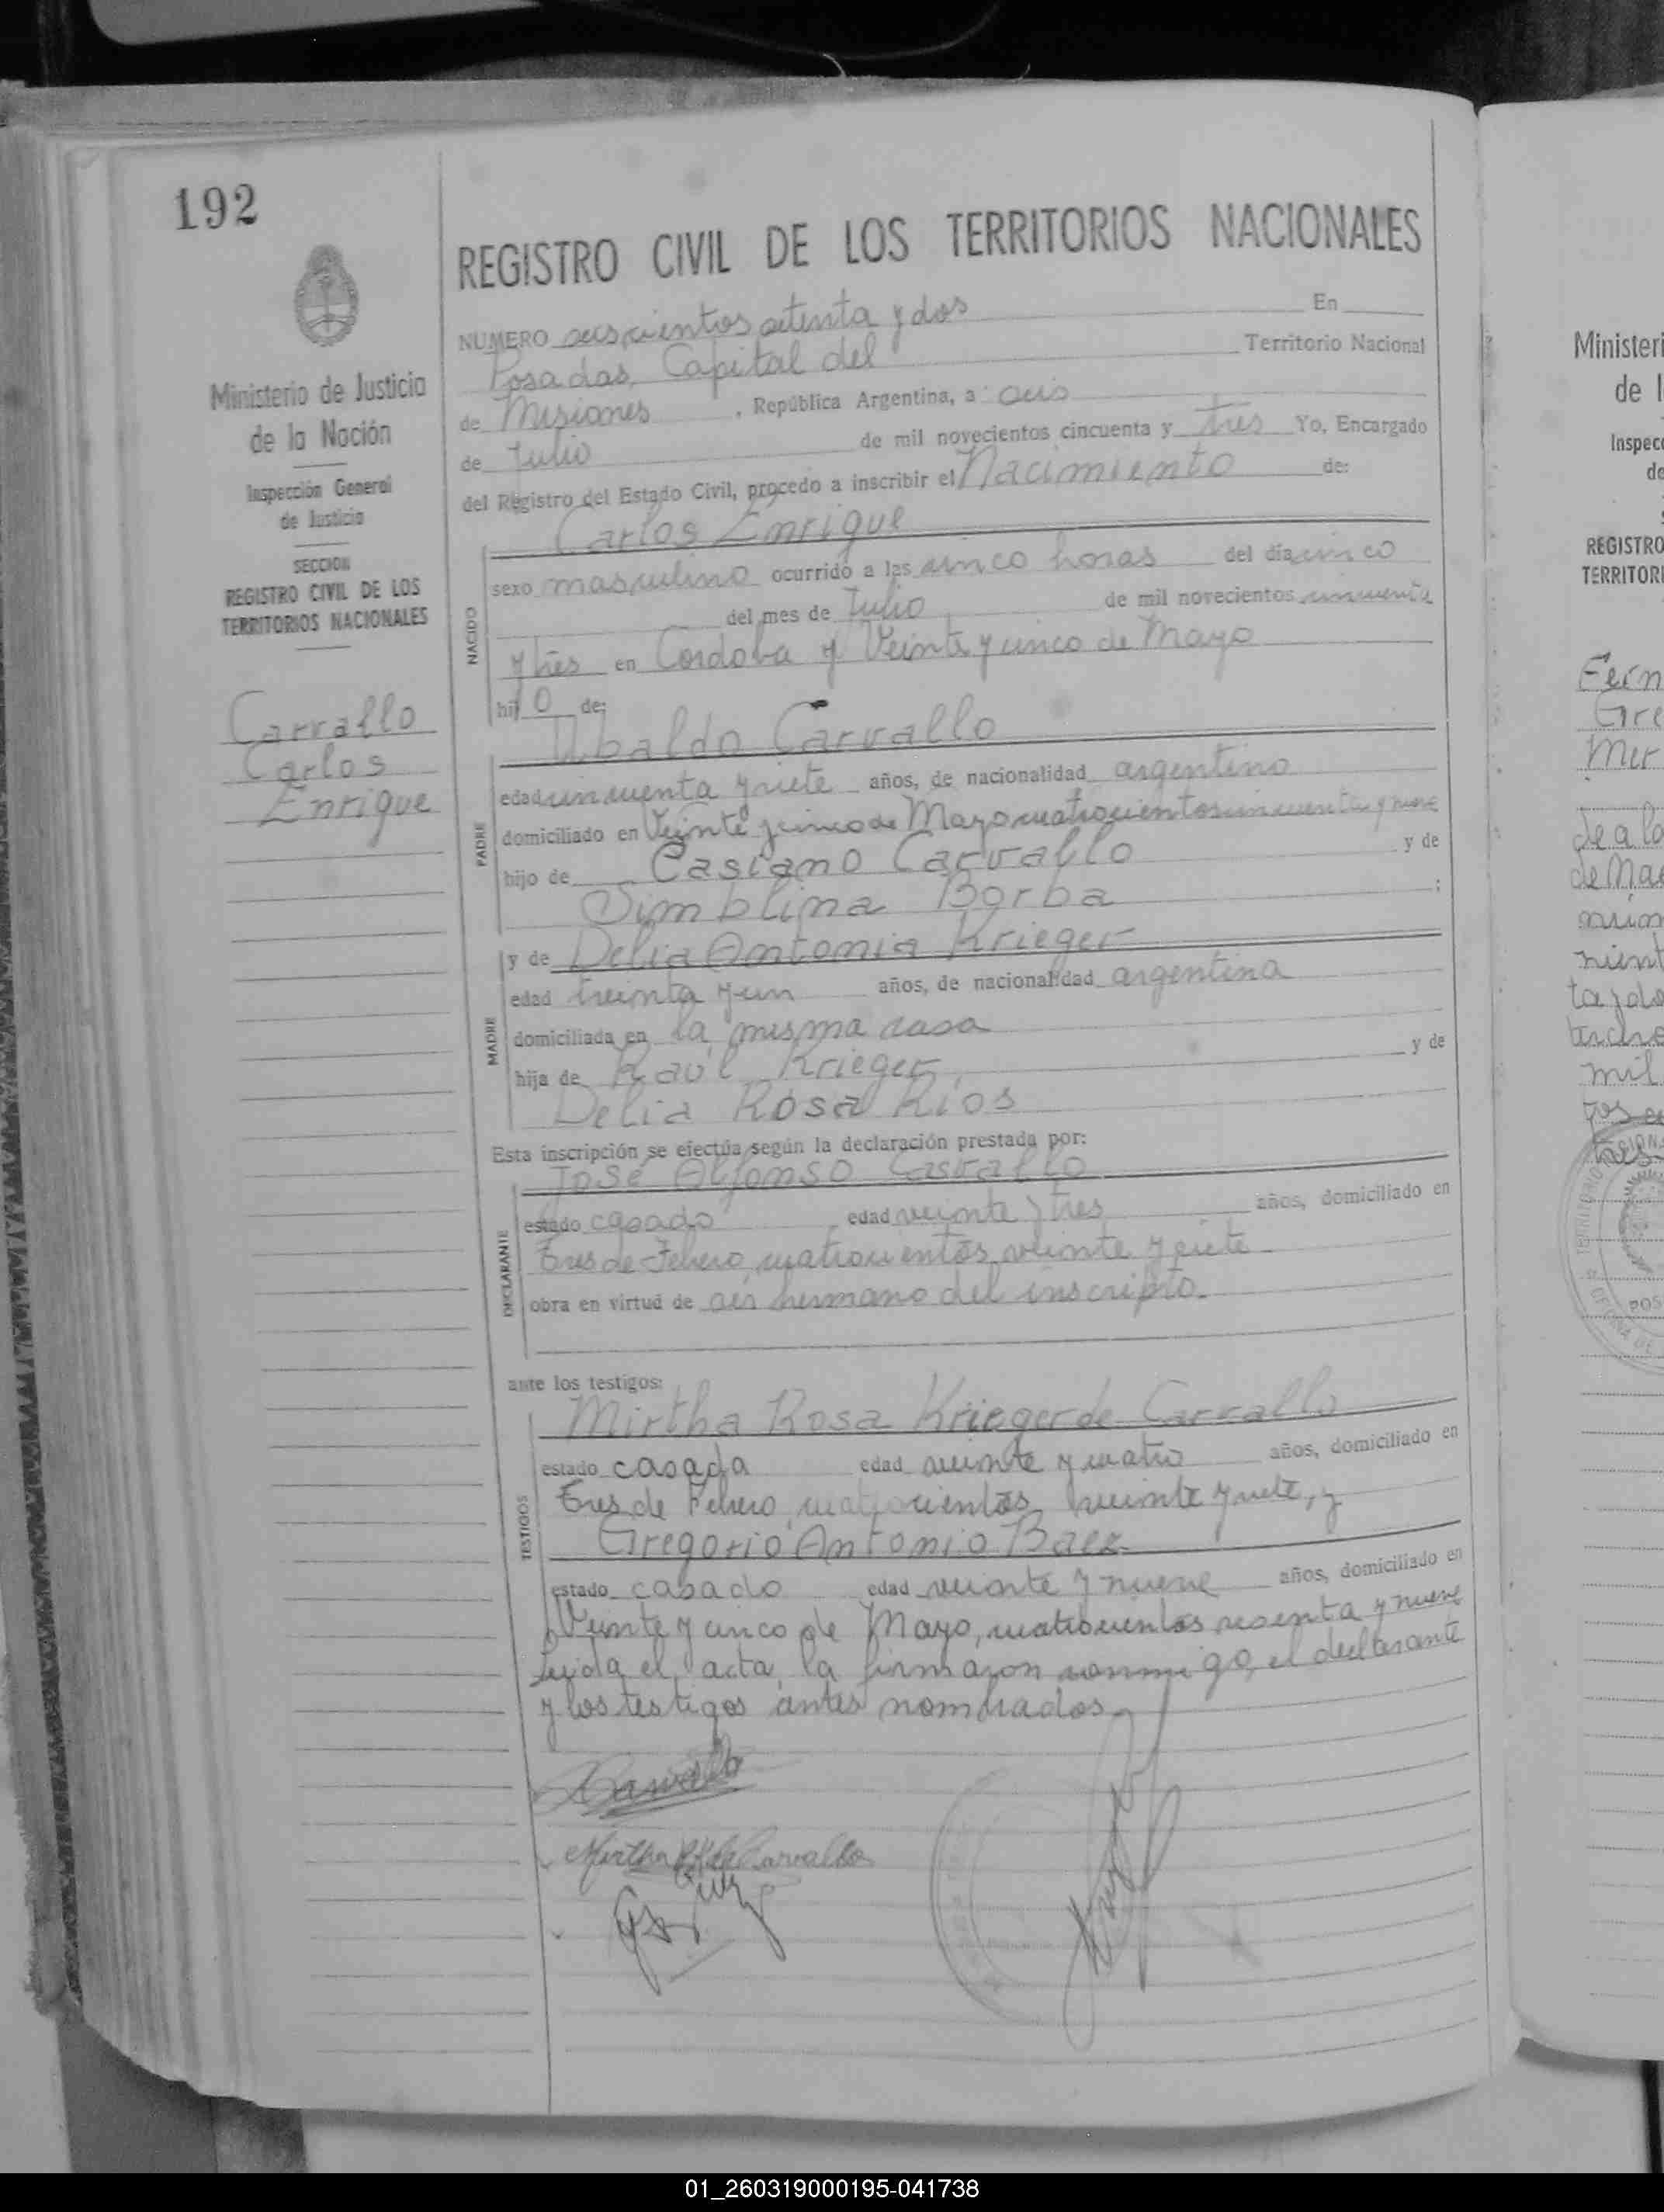 192
Ministerio de Justicia
de la Nación
Inspección General
de Justicia
SECCION
REGISTRO CIVIL DE LOS
TERRITORIOS NACIONALES
Carvallo
Carlos
Enrique
REGISTRO CIVIL DE LOS TERRITORIOS NACIONALES
NUMERO seiscientos setenta y dos En
Posadas, Capital del Territorio Nacional
de Misiones, República Argentina, a seis
de Julio de mil novecientos cincuenta y tres Yo, Encargado
del Registro del Estado Civil, procedo a inscribir el Nacimiento de:
Carlos Enrique
NACIDO
sexo masculino ocurrido a las cinco horas del día cinco
del mes de Julio de mil novecientos cincuenta
y tres en Cordoba y Veinte y cinco de Mayo
hijo de:
Ubaldo Carvallo
PADRE
edad cincuenta y siete años, de nacionalidad argentino
domiciliado en Veinte y cinco de Mayo cuatrocientos cincuenta y nueve
hijo de Casiano Carvallo y de
Simblina Borba ;
MADRE
y de Delia Antonia Krieger
edad treinta y un años, de nacionalidad argentina
domiciliada en la misma casa
hija de Raúl Krieger y de
Delia Rosa Rios
Esta inscripción se efectúa según la declaración prestada por:
José Alfonso Carvallo
DECLARANTE
estado casado edad veinte y tres años, domiciliado en
Tres de Febrero, cuatrocientos veinte y siete
obra en virtud de ser hermano del inscripto.
ante los testigos:
Mirtha Rosa Krieger de Carvallo
TESTIGOS
estado casada edad veinte y cuatro años, domiciliado en
Tres de Febrero, cuatrocientos veinte y siete, y
Gregorio Antonio Baez
estado casado edad veinte y nueve años, domiciliado en
Veinte y cinco de Mayo, cuatrocientos sesenta y nueve
Leida el acta, la firmaron conmigo, el declarante
y los testigos antes nombrados.
Carvallo
Mirtha R K de Carvallo
Ministeri
de l
Inspecc
de
REGISTRO
TERRITORI
Fern
Gre
Mer
de a lo
de Ma
mil
POS
01_260319000195-041738